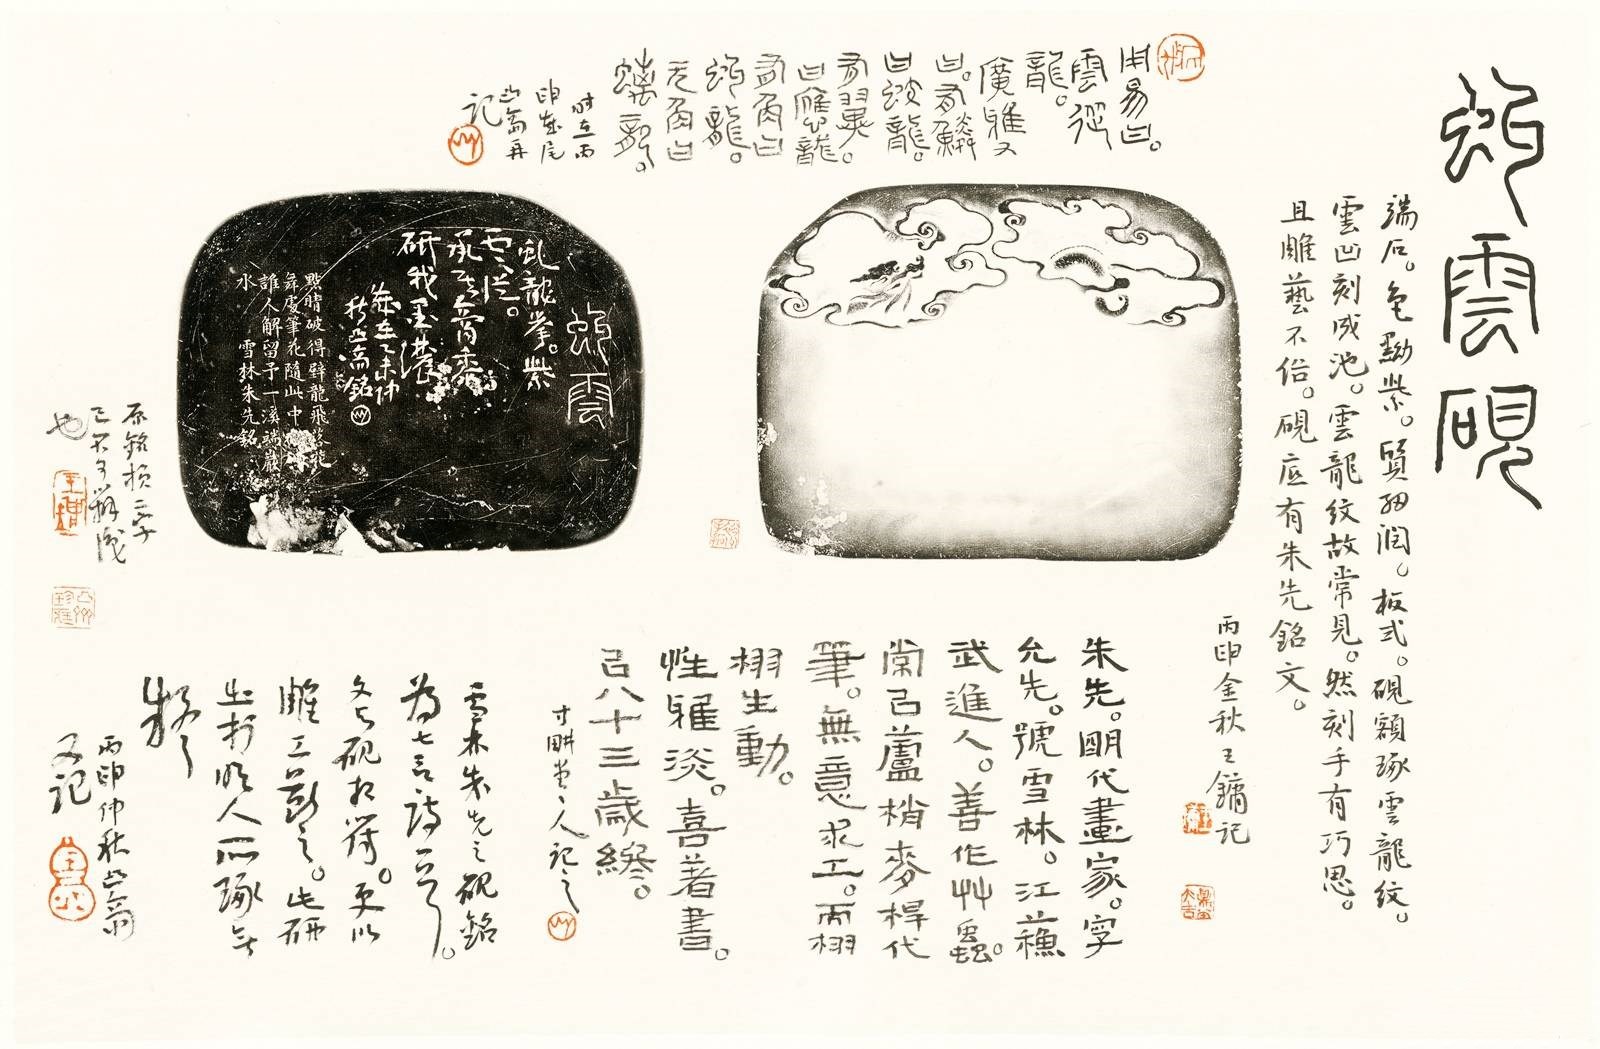 虯雲硯
端石。色黝紫。質細潤。板式。硯額琢雲龍紋。
雲凹刻成池。雲龍紋故常見。然刻手有巧思。
且雕藝不俗。硯底有朱先銘文。
丙申金秋王鏞記
周易曰。
雲從
龍。
廣雅又
曰。有鱗
曰蛟龍。
有翼
曰應龍
有角曰
虯龍。
无角曰
螭龍。
時在丙
申歲尾
凸翁再
記
虯雲
虬龍拏。紫
雲從。
研我墨濃
點睛破得壁龍飛
舞處筆花隨此中
誰人解留予一溪端巖
水 雪林朱先銘
原銘損二字
已不可辨識
也
朱先。明代畫家。字
允先。號雪林。江蘇
武進人。善作艸蟲。
常以蘆梢麥桿代
筆。無意求工。而栩
栩生動。
性雅淡。喜著書。
以八十三歲終。
寸耕堂主人記之
雪林朱先之硯銘
為七言詩一首。
文与硯相符。更以
雕工觀之。此研
出於明人所琢無
疑
丙申仲秋凸翁
又記